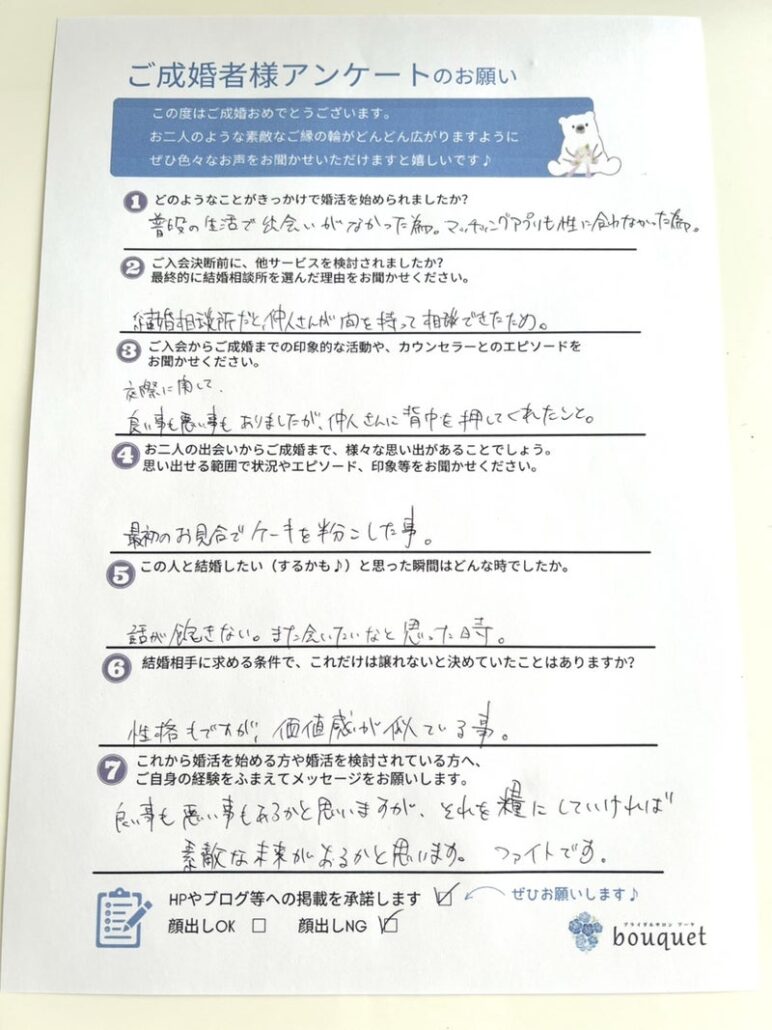 ご成婚者様アンケートのお願い
この度はご成婚おめでとうございます。
お二人のような素敵なご縁の輪がどんどん広がりますように
ぜひ色々なお声をお聞かせいただけますと嬉しいです♪
1 どのようなことがきっかけで婚活を始められましたか?
普段の生活で出会いがなかった為。マッチングアプリも性に合わなかった為。
2 ご入会決断前に、他サービスを検討されましたか?
最終的に結婚相談所を選んだ理由をお聞かせください。
結婚相談所だと、仲人さんが間を持って相談できたため。
3 ご入会からご成婚までの印象的な活動や、カウンセラーとのエピソードを
お聞かせください。
交際に関して、
良い事も悪い事もありましたが、仲人さんに背中を押してくれたこと。
4 お二人の出会いからご成婚まで、様々な思い出があることでしょう。
思い出せる範囲で状況やエピソード、印象等をお聞かせください。
最初のお見合でケーキを半分こした事。
5 この人と結婚したい（するかも♪）と思った瞬間はどんな時でしたか。
話が飽きない。また会いたいなと思った時。
6 結婚相手に求める条件で、これだけは譲れないと決めていたことはありますか?
性格もですが、価値感が似ている事。
7 これから婚活を始める方や婚活を検討されている方へ、
ご自身の経験をふまえてメッセージをお願いします。
良い事も悪い事もあるかと思いますが、それを糧にしていければ
素敵な未来がおるかと思います。ファイトです。
HPやブログ等への掲載を承諾します ☑ ぜひお願いします♪
顔出しOK ☐ 顔出しNG ☑
ブライダルサロン ブーケ
bouquet